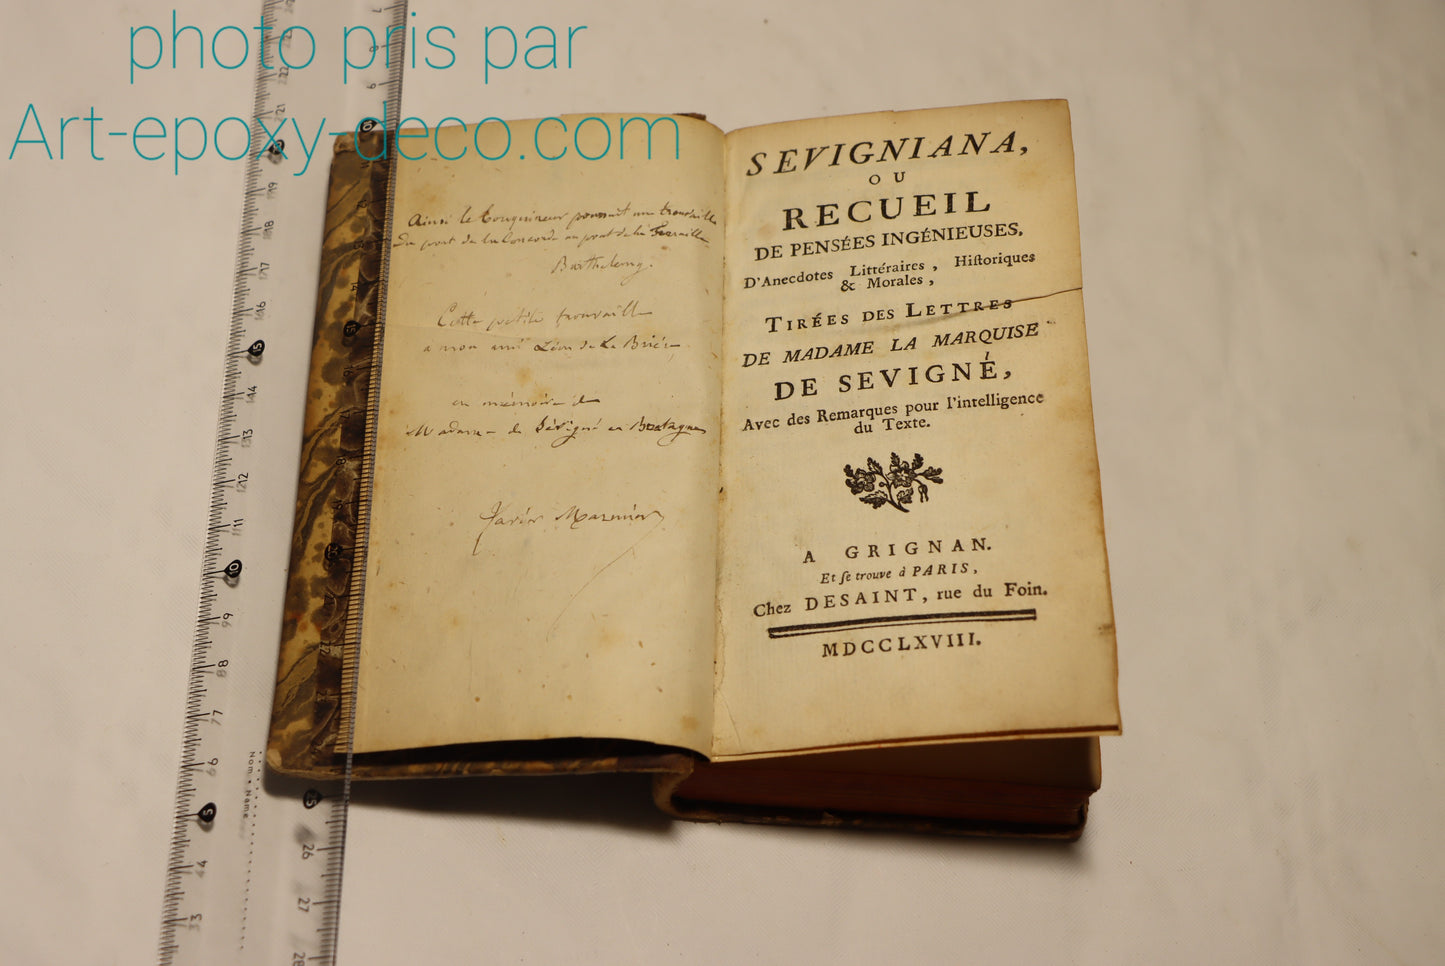 photo pris par
Art-epoxy-deco.com
Ainsi le bouquineur poursuit une trouvaille
Du pont de la Concorde au pont de la Ferraille
Barthelemy.
Cette petite trouvaille
a mon ami Léon de La Brière
en mémoire de
Madame de Sévigné en Bretagne
Xavier Marmier
SEVIGNIANA,
OU
RECUEIL
DE PENSÉES INGÉNIEUSES,
D'Anecdotes Littéraires, Hiſtoriques
& Morales,
TIRÉES DES LETTRES
DE MADAME LA MARQUISE
DE SEVIGNÉ,
Avec des Remarques pour l'intelligence
du Texte.
A GRIGNAN.
Et ſe trouve à PARIS,
Chez DESAINT, rue du Foin.
MDCCLXVIII.
Nom • Name